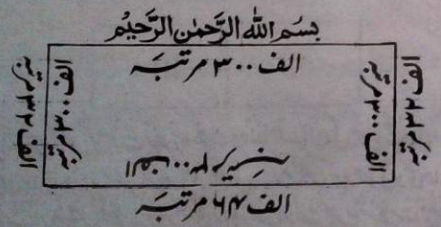 بِسْمِ اللهِ الرَّحْمٰنِ الرَّحِيْمِ
الف ۳۰۰ مرتبہ
الف ۳۲ مرتبہ
الف ۳۰۰ مرتبہ
الف ۳۰۰ مرتبہ
الف ۳۲ مرتبہ
الف ۳۰۰ مرتبہ
الف ۶۴ مرتبہ